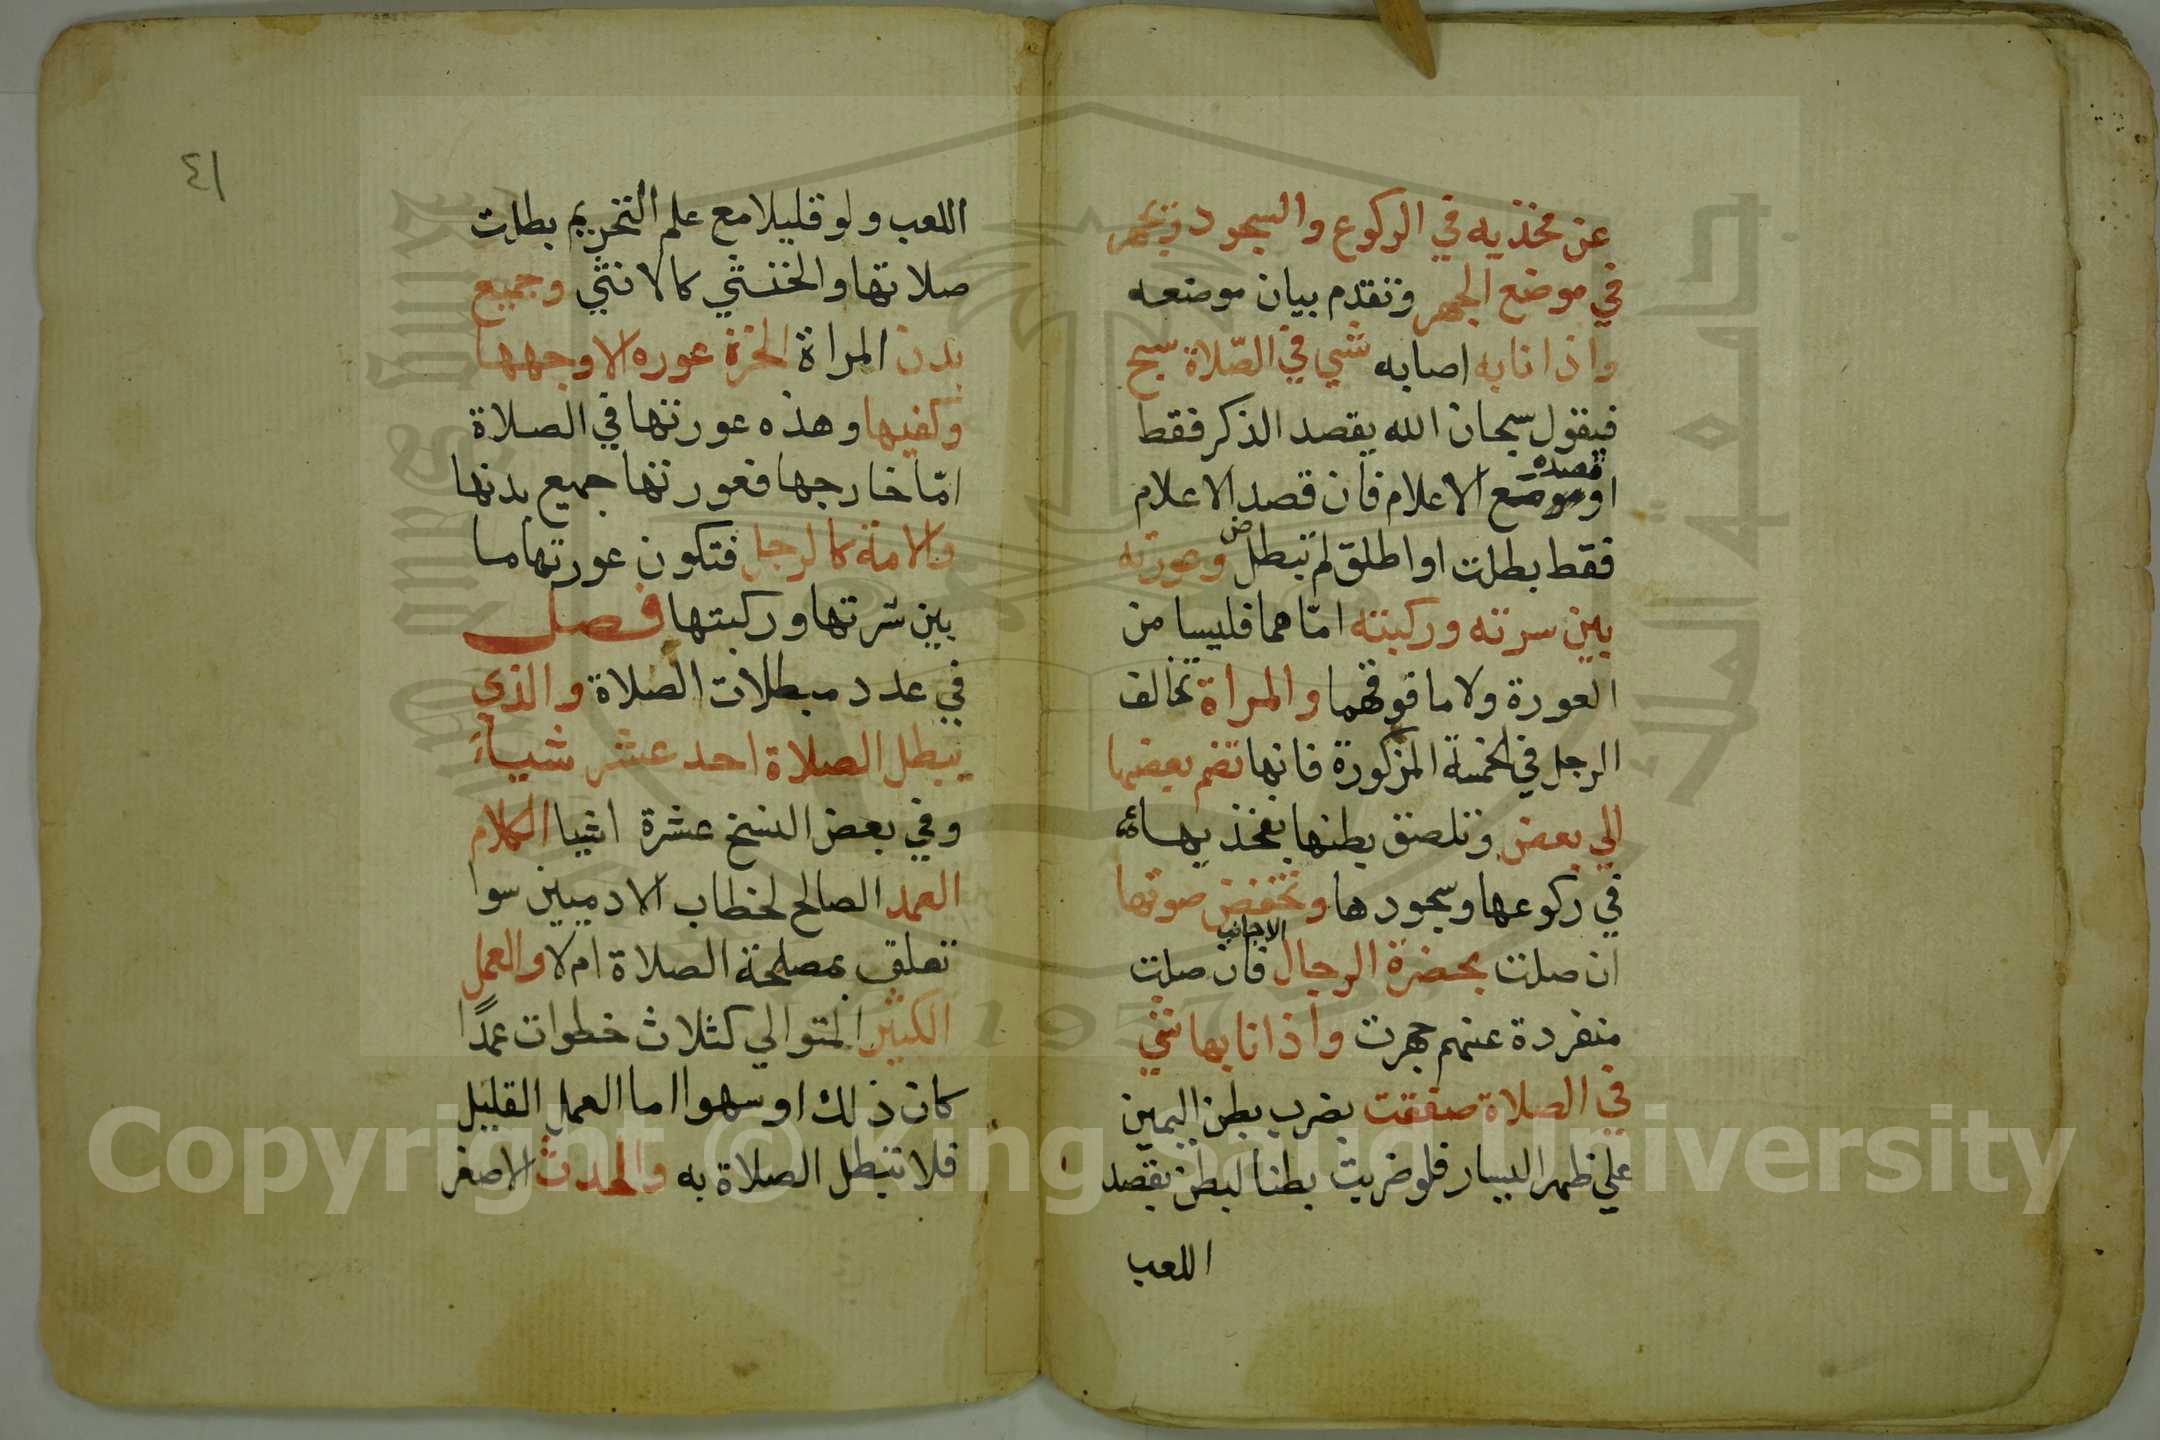 عن فخذيه في الركوع والسجود ويجهر
في موضع الجهر وتقدم بيان موضعه
واذا نابه اصابه شي في الصّلاة سبح
فيقول سبحان الله بقصد الذكر فقط
قصده
او مع الاعلام فان قصد الاعلام
فقط بطلت او اطلق لم تبطل وعورته
بين سرته وركبته امّا هما فليسا من
العورة ولا ما فوقهما والمراة تخالف
الرجل في الخمسة المزكورة فانها تضم بعضها
الي بعض وتلصق بطنها بفخذيها
في ركوعها وسجودها وتخفض صوتها
الاجانب
ان صلت بحضرة الرجال فان صلت
منفردة عنهم جهرت واذا نابها شي
في الصلاة صفقت بضرب بطن اليمين
علي ظهر اليسار فلو ضربت بطنا لبطن بقصد
اللعب
٤١
اللعب ولو قليلا مع علم التحريم بطلت
صلاتها والخنثي كالانثي وجميع
بدن المراة الحرة عوره الا وجهها
وكفيها وهذه عورتها في الصلاة
امّا خارجها فعورتها جميع بدنها
والامة كالرجل فتكون عورتها ما
بين سّرتها وركبتها فصل
في عدد مبطلات الصلاة والذي
يبطل الصلاة احد عشر شياءً
وفي بعض النسخ عشرة اشيا الكلام
العمد الصالح لخطاب الادميين سوا
تعلق بمصلحة الصلاة ام لا والعمل
الكثير المتوالي كثلاث خطوات عمدًا
كان ذلك او سهوا اما العمل القليل
فلا تبطل الصلاة به والحدث الاصغر
Copyright © King Saud University
جامعة الملك سعود
King Saud University
1957